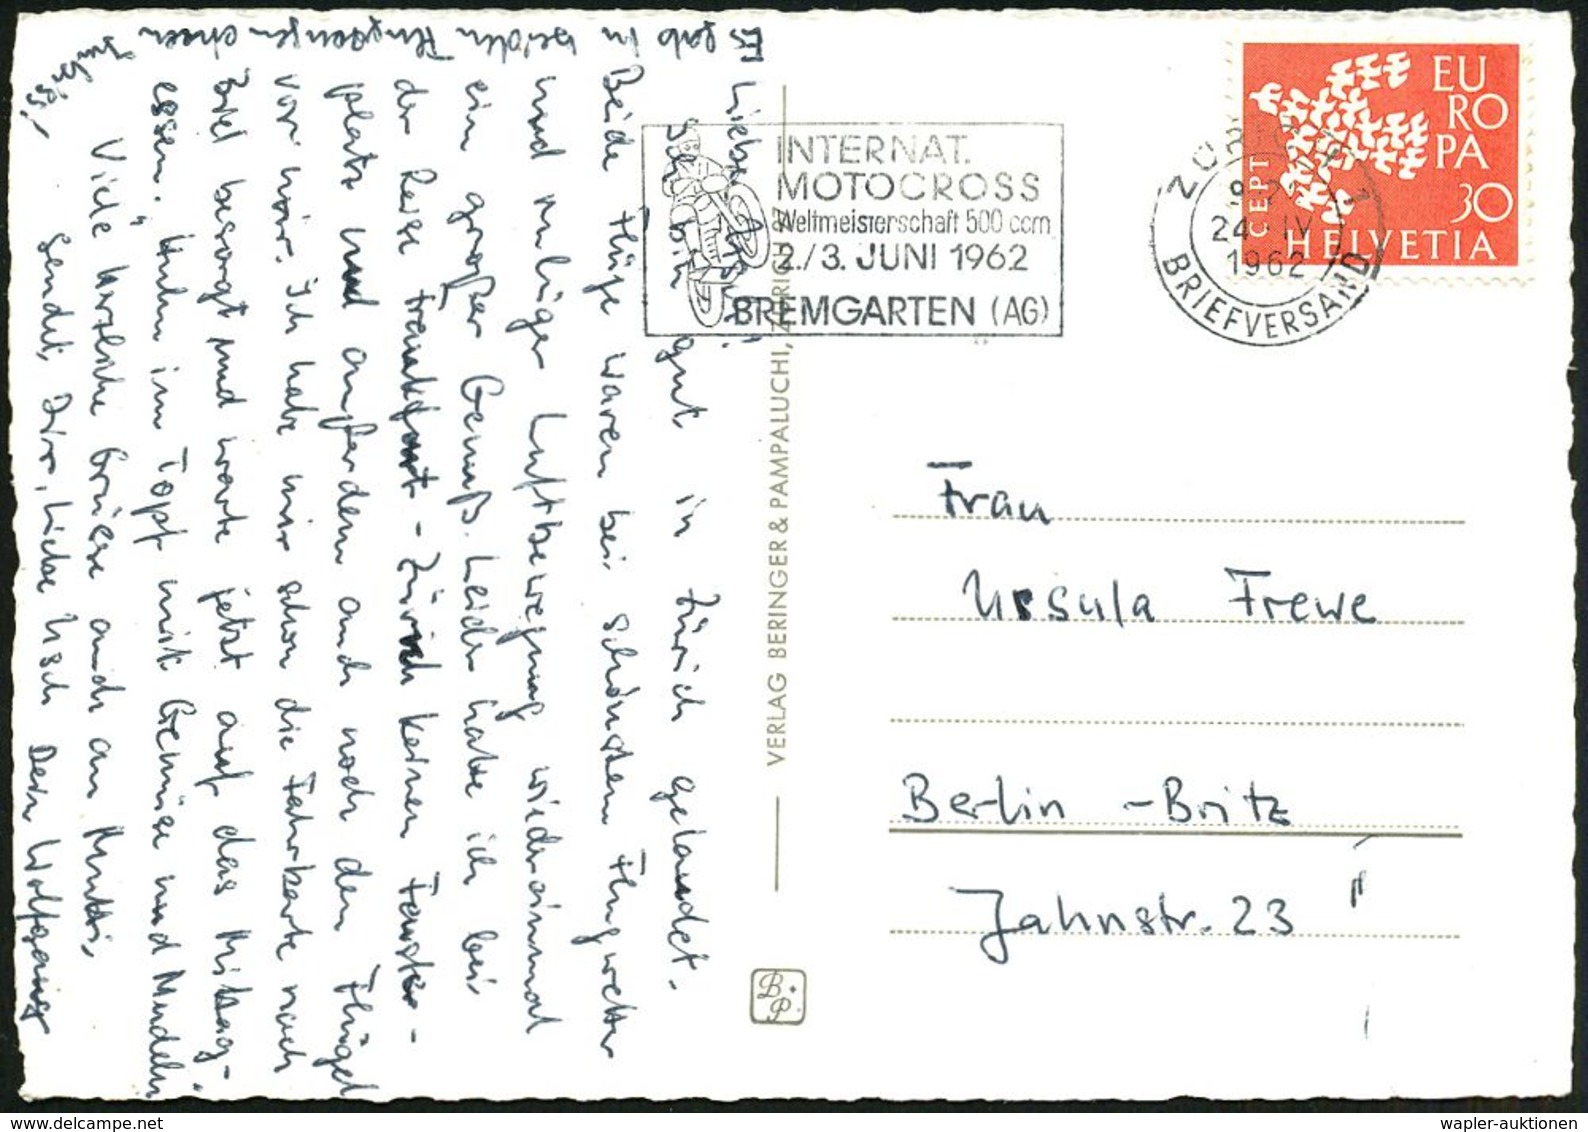 Es gab in beiden Flugzeugen einen
Imbiss!
Liebe
bin gut in Zürich gelandet.
Beide Flüge waren bei schönstem Flugwetter
und ruhiger Luftbewegung wiedereinmal
ein großer Genuß. Leider habe ich bei
der Reise Frankfurt - Zürich keinen Fenster-
platz und außerdem auch noch den Flügel
vor mir. Ich habe mir schon die Fahrkarte nach
Biel besorgt und warte jetzt auf das Mittag-
essen: "Huhn im Topf mit Gemüse und Nudeln"
Viele herzliche Grüsse auch an Mutti,
sendet Dir, liebe Usch Dein Wolfgang
VERLAG BERINGER & PAMPALUCHI, ZÜRICH
B.P.
INTERNAT.
MOTOCROSS
Weltmeisterschaft 500 ccm
2./3. JUNI 1962
BREMGARTEN (AG)
ZÜRICH 1
24. IV
1962
BRIEFVERSAND
EU
RO
PA
30
CEPT
HELVETIA
Frau
Ursula Frewe
Berlin - Britz
Jahnstr. 23
wapler-auktionen